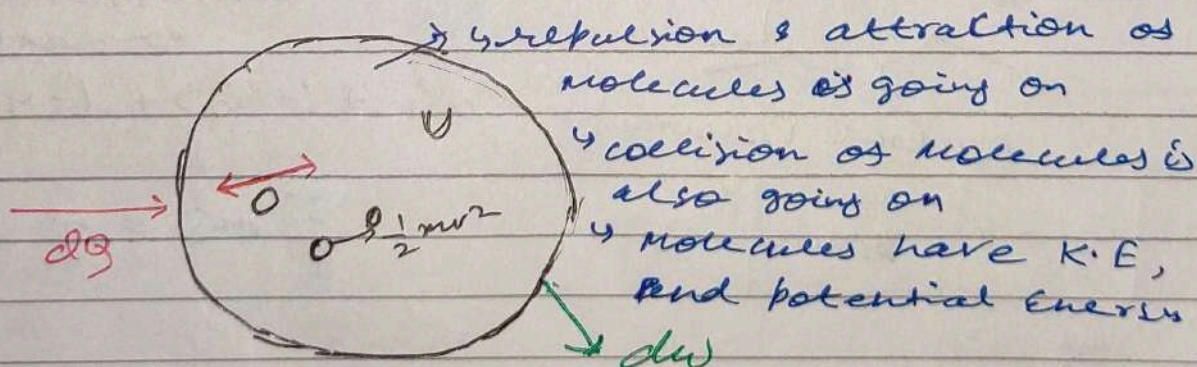 ↳ repulsion & attraction of
molecules is going on
U
↳ collision of molecules is
also going on
½mv²
dQ
↳ molecules have K.E,
and potential Energy
dw